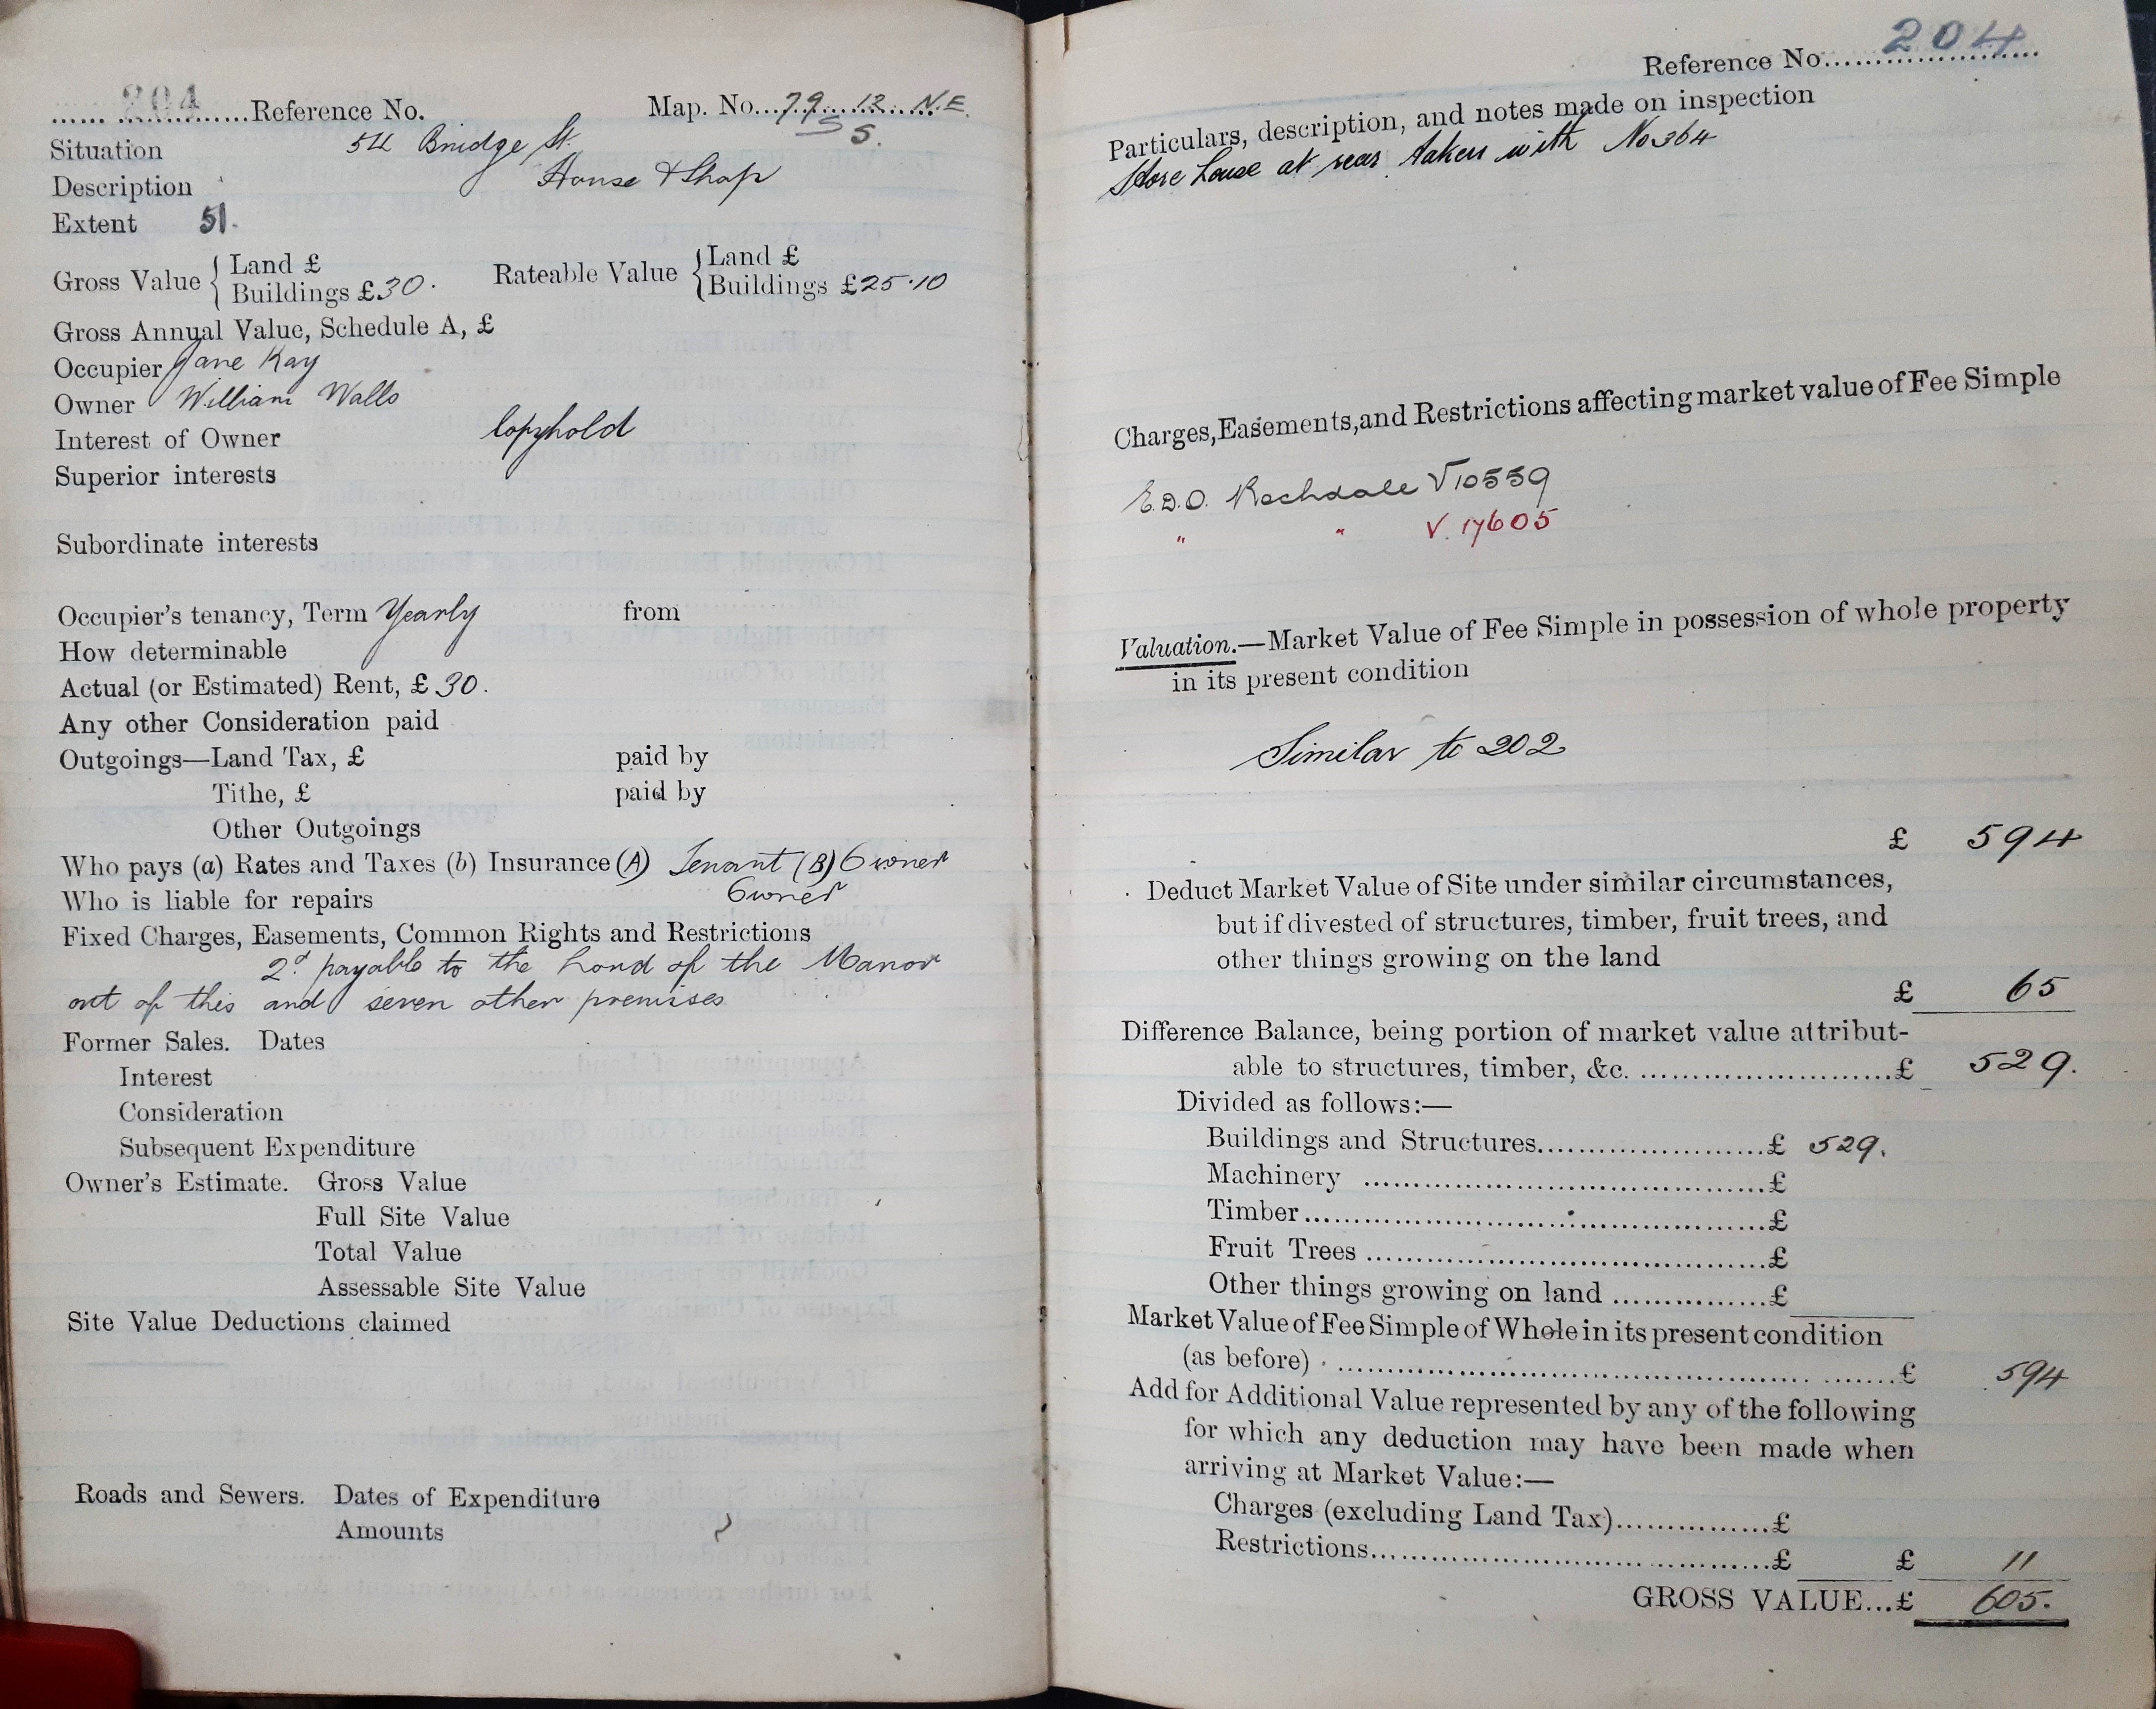 204 Reference No. Map. No. 79 12 N.E.
S S.
Situation 54 Bridge St.
Description House & Shop
Extent 51.
Gross Value { Land £
Buildings £30.
Rateable Value { Land £
Buildings £25.10
Gross Annual Value, Schedule A, £
Occupier Jane Kay
Owner William Walls
Interest of Owner Copyhold
Superior interests
Subordinate interests
Occupier's tenancy, Term Yearly from
How determinable
Actual (or Estimated) Rent, £ 30.
Any other Consideration paid
Outgoings—Land Tax, £ paid by
Tithe, £ paid by
Other Outgoings
Who pays (a) Rates and Taxes (b) Insurance (A) Tenant (B) Owner
Who is liable for repairs Owner
Fixed Charges, Easements, Common Rights and Restrictions
2d payable to the Lord of the Manor
out of this and seven other premises
Former Sales. Dates
Interest
Consideration
Subsequent Expenditure
Owner's Estimate. Gross Value
Full Site Value
Total Value
Assessable Site Value
Site Value Deductions claimed
Roads and Sewers. Dates of Expenditure
Amounts
Reference No. 204
Particulars, description, and notes made on inspection
Store house at rear taken with No 364
Charges, Easements, and Restrictions affecting market value of Fee Simple
E.D.O. Rochdale V10559
" " V. 17605
Valuation.—Market Value of Fee Simple in possession of whole property
in its present condition
Similar to 202
£ 594
Deduct Market Value of Site under similar circumstances,
but if divested of structures, timber, fruit trees, and
other things growing on the land
£ 65
Difference Balance, being portion of market value attribut-
able to structures, timber, &c. £ 529.
Divided as follows:—
Buildings and Structures £ 529.
Machinery £
Timber £
Fruit Trees £
Other things growing on land £
Market Value of Fee Simple of Whole in its present condition
(as before) £ 594
Add for Additional Value represented by any of the following
for which any deduction may have been made when
arriving at Market Value:—
Charges (excluding Land Tax) £
Restrictions £ £ 11
GROSS VALUE...£ 605.